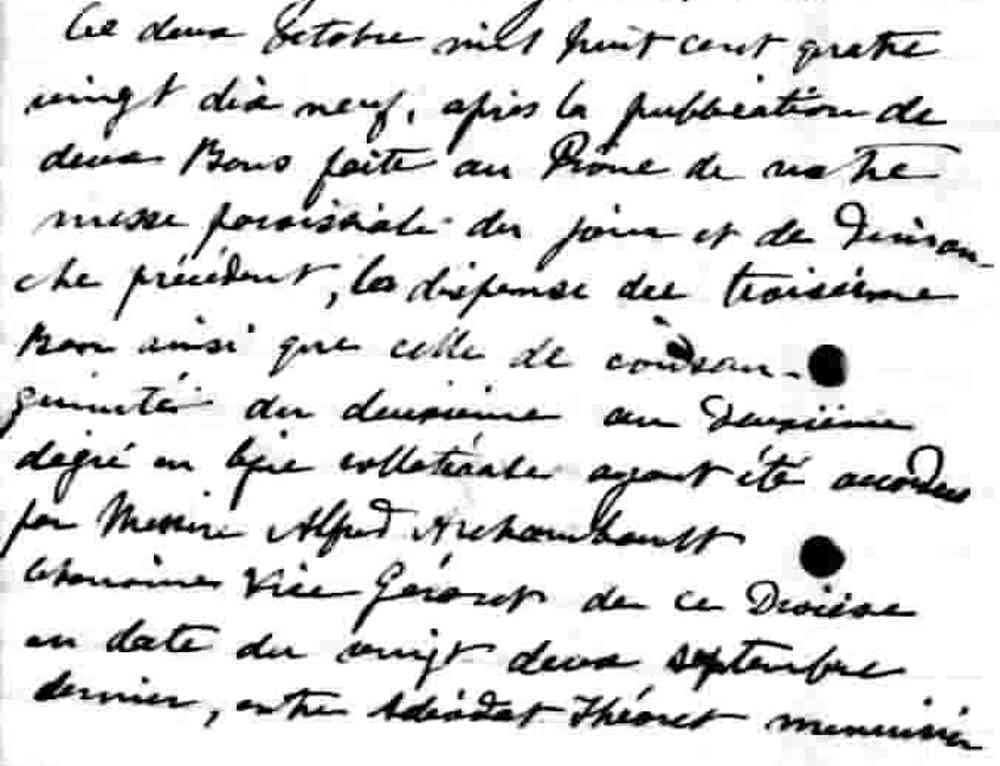 Ce deux Octobre mil huit cent quatre
vingt dix neuf, après la publication de
deux Bans faite au Prône de notre
messe paroissiale du jour et de Diman-
che précédent, la dispense du troisième
Ban ainsi que celle de consan-
guinité du deuxième au deuxième
degré en ligne collatérale ayant été accordées
par Messire Alfred Archambault
Chanoine Vice Gérant de ce Diocèse
en date du vingt deux septembre
dernier, entre Adéodat Théoret menuisier